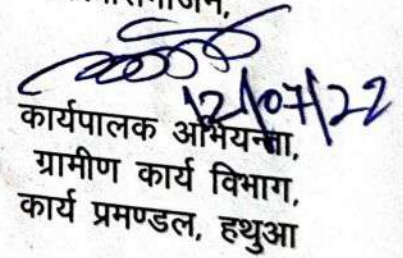 12/07/22
कार्यपालक अभियन्ता,
ग्रामीण कार्य विभाग,
कार्य प्रमण्डल, हथुआ